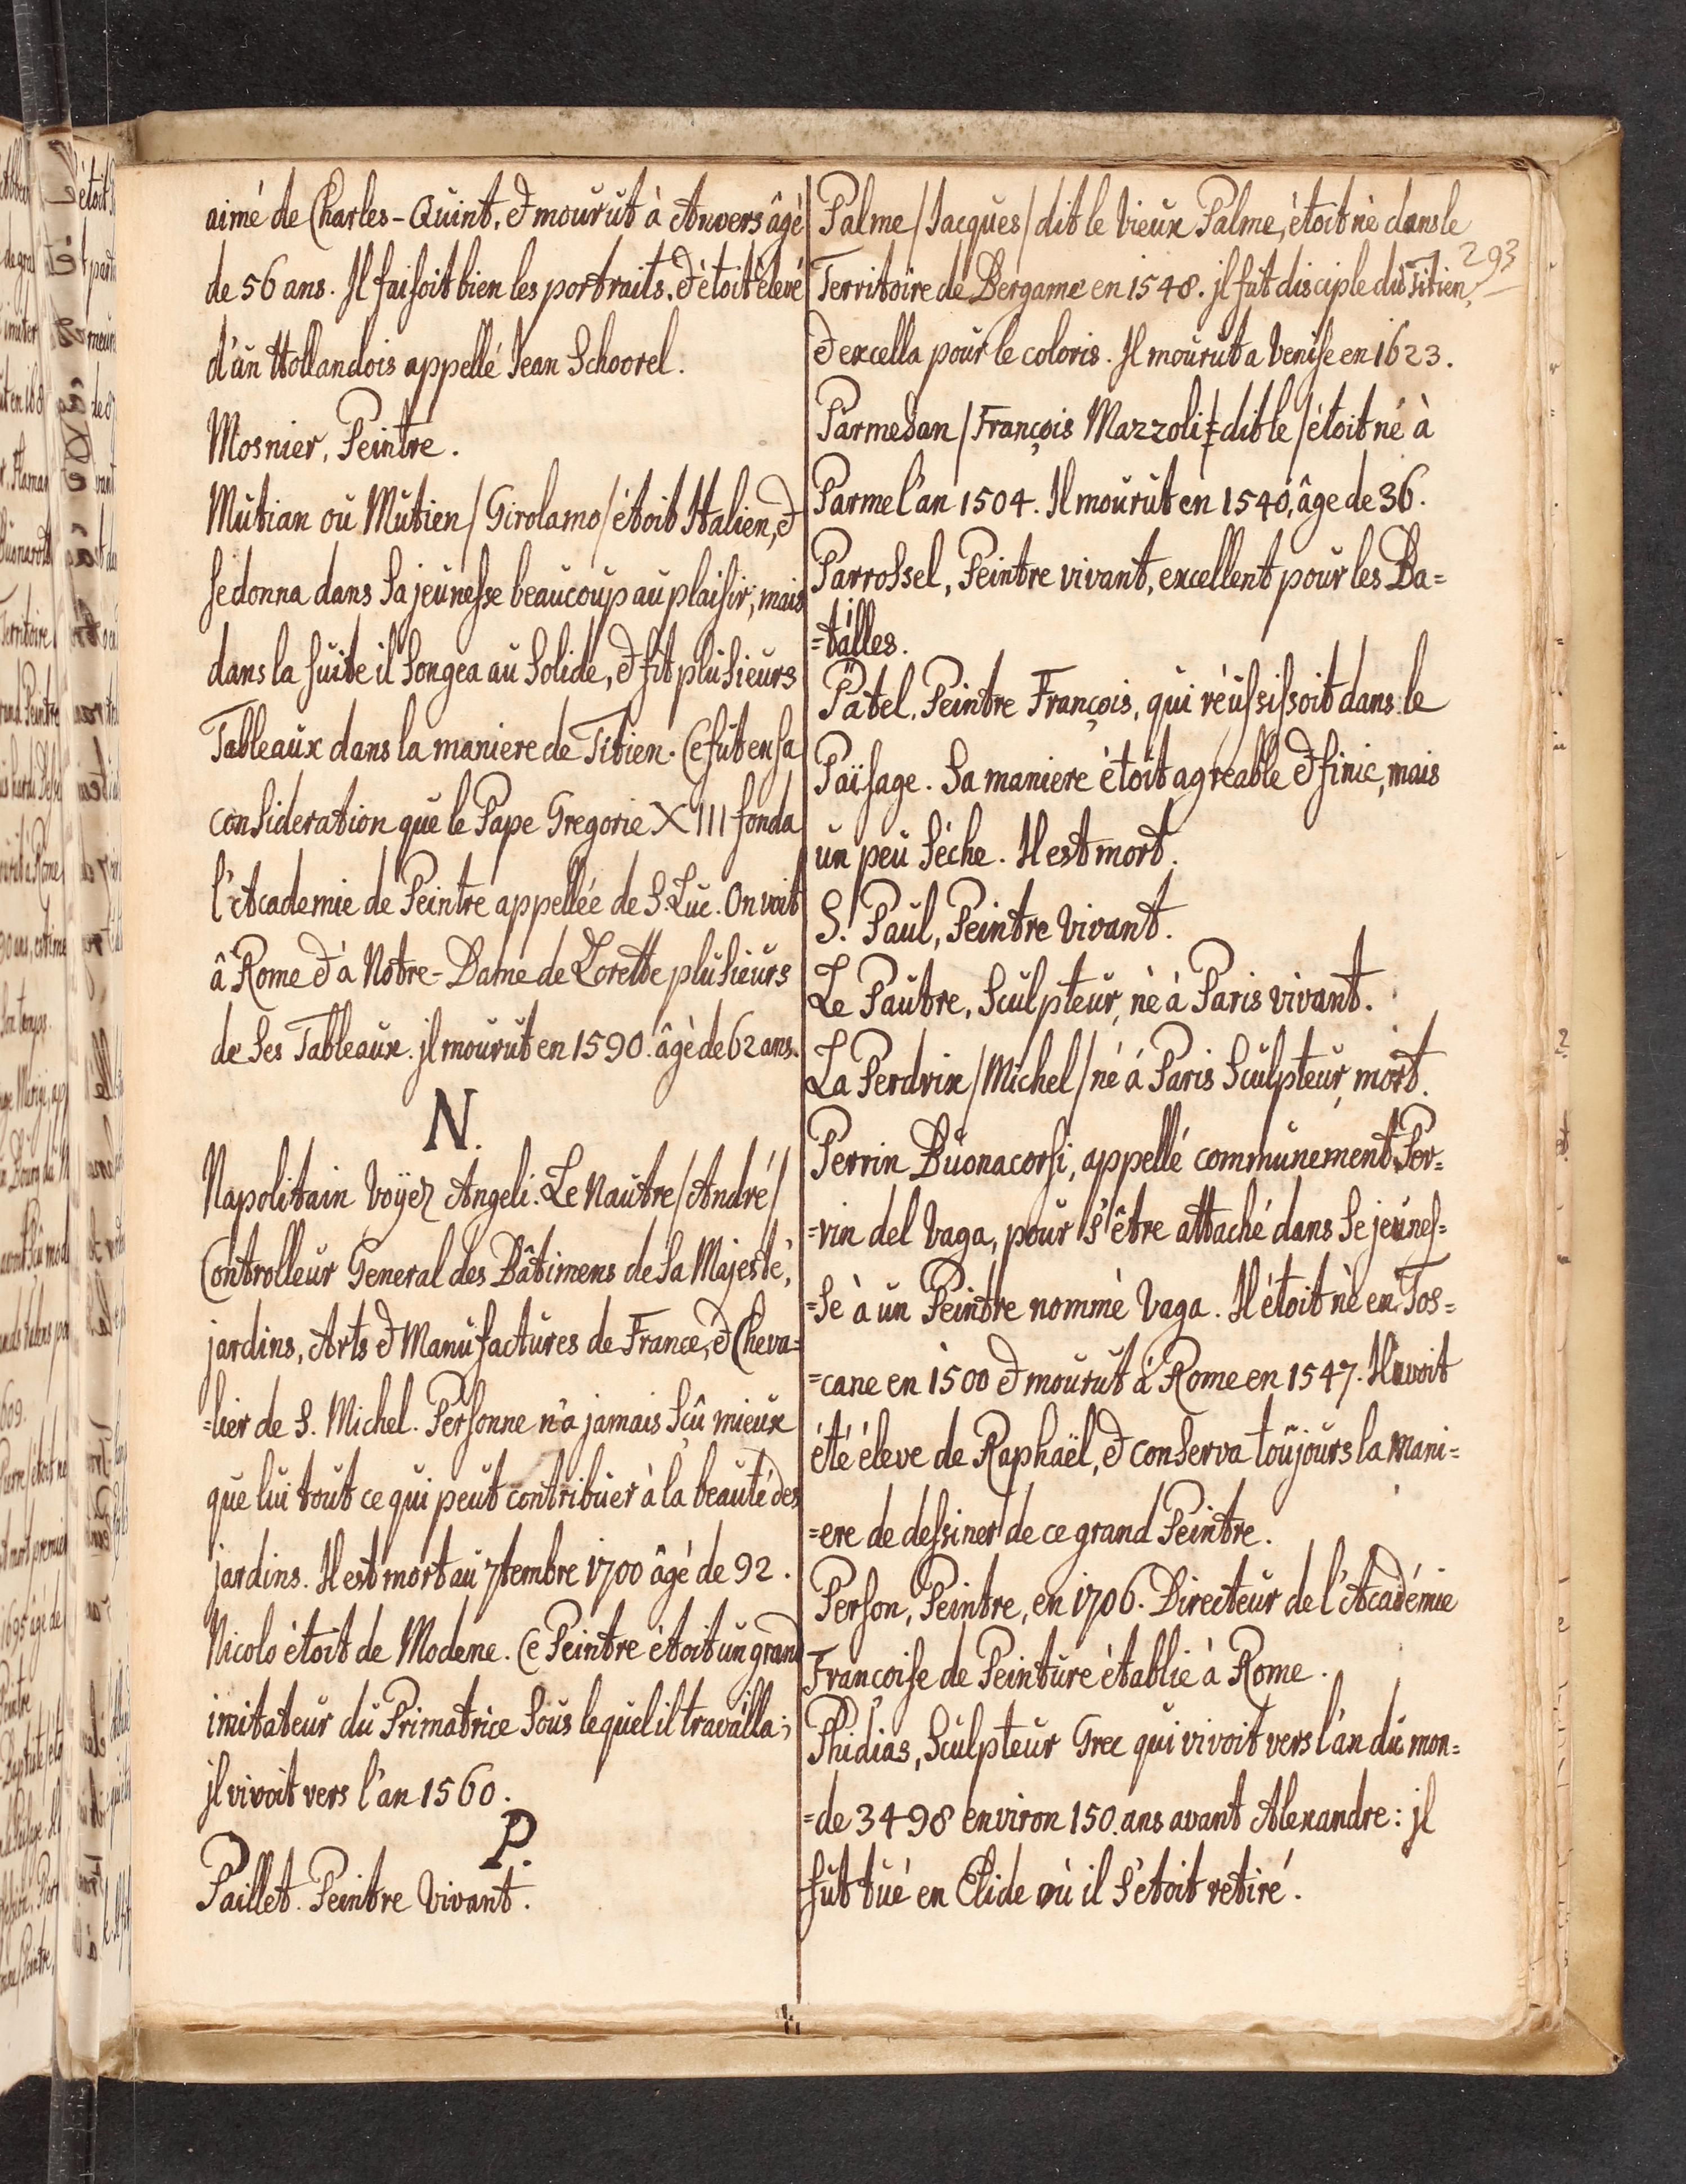 aimé de Charles-Quint, & mourut à Anvers âgé
de 56 ans. Il faisoit bien les portraits, & étoit élevé
d'un Hollandois appellé Jean Schoorel.
Mosnier, Peintre.
Mutian ou Mutien / Girolamo / étoit Italien, &
se donna dans sa jeunesse beaucoup au plaisir, mais
dans la suite il songea au solide, & fit plusieurs
Tableaux dans la maniere de Titien. Ce fut en sa
consideration que le Pape Gregorie XIII fonda
l'Academie de Peintre appellée de S. Luc. On voit
â Rome & à Notre-Dame de Lorette plusieurs
de ses Tableaux. jl mourut en 1590. âgè de 62 ans.
N.
Napolitain voÿez Angeli. Le Nautre / André /
Controlleur General des Bâtimens de Sa Majesté,
jardins, Arts & Manufactures de France, & Cheva=
=lier de S. Michel. Personne n'a jamais sçû mieux
que lui tout ce qui peut contribuer à la beauté des
jardins. Il est mort au 7tembre 1700 âgé de 92.
Nicolo étoit de Modene. Ce Peintre étoit un grand
imitateur du Primatrice sous lequel il travailla;
jl vivoit vers l'an 1560.
P.
Paillet. Peintre vivant.
Palme / Jacques / dit le vieux Palme, étoit né dans le
293
Territoire de Bergame en 1548. jl fut disciple du Titien,
& excella pour le coloris. Il mourut a Venise en 1623.
Parmesan / François Mazzoli dit le / étoit né à
Parme l'an 1504. Il mourut en 1540, âge de 36.
Parrossel, Peintre vivant, excellent pour les Ba=
=tailles.
Patel, Peintre François, qui réussissoit dans le
Païsage. Sa maniere étoit agreable & finie, mais
un peu séche. Il est mort.
S. Paul, Peintre vivant.
Le Pautre, Sculpteur, né à Paris vivant.
La Perdrix / Michel / né á Paris Sculpteur, mort.
Perrin Buonacorsi, appellé communement Per=
=vin del Vaga, pour s'être attaché dans se jeunes=
=se à un Peintre nommé Vaga. Il étoit nè en Tos=
=cane en 1500 & mourut á Rome en 1547. Il avoit
été éleve de Raphaël, & conserva toujours la mani=
=ere de dessiner de ce grand Peintre.
Person, Peintre, en 1706. Directeur de l'Académie
Francoise de Peinture établie à Rome.
Phidias, Sculpteur Grec qui vivoit vers l'an du mon=
=de 3498 environ 150. ans avant Alexandre: jl
fut tué en Elide où il s'étoit retiré.